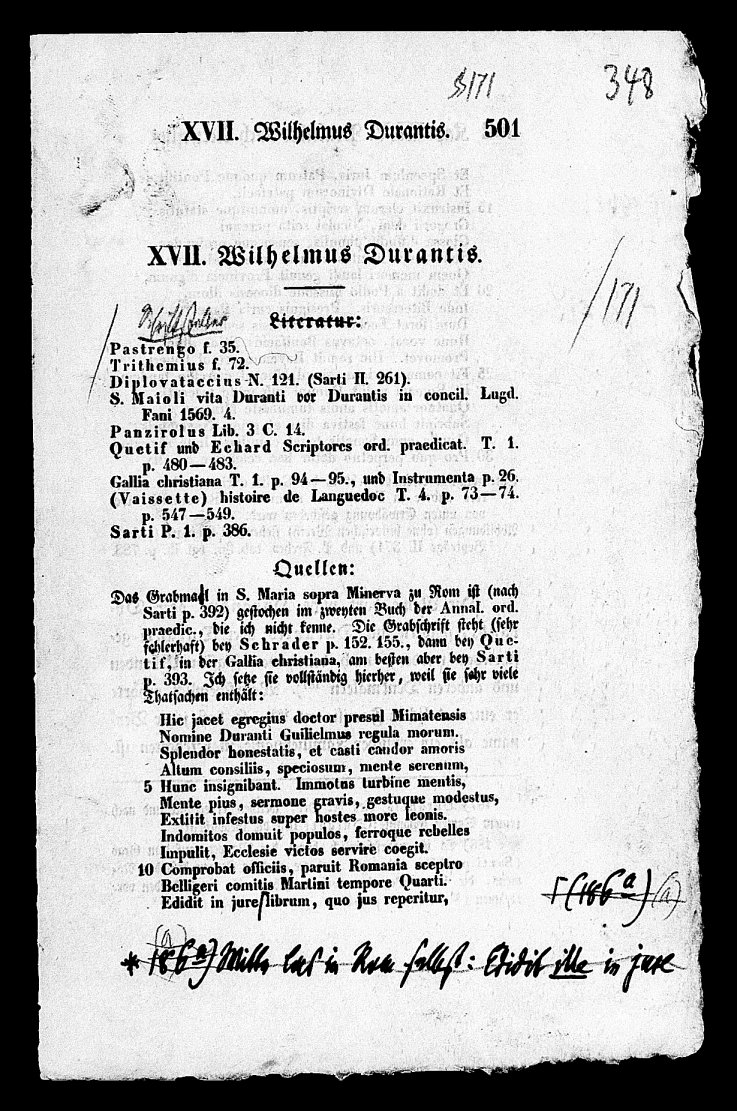 §171 348
XVII. Wilhelmus Durantis. 501
XVII. Wilhelmus Durantis.
/171
Schriftsteller Literatur:
Pastrengo f. 35.
Trithemius f. 72.
Diplovataccius N. 121. (Sarti II. 261).
S. Maioli vita Duranti vor Durantis in concil. Lugd.
Fani 1569. 4.
Panzirolus Lib. 3 C. 14.
Quetif und Echard Scriptores ord. praedicat. T. 1.
p. 480—483.
Gallia christiana T. 1. p. 94—95., und Instrumenta p. 26.
(Vaissette) histoire de Languedoc T. 4. p. 73—74.
p. 547—549.
Sarti P. 1. p. 386.
Quellen:
Das Grabmahl in S. Maria sopra Minerva zu Rom ist (nach
Sarti p. 392) gestochen im zweyten Buch der Annal. ord.
praedic., die ich nicht kenne. Die Grabschrift steht (sehr
fehlerhaft) bey Schrader p. 152. 155., dann bey Que-
tif, in der Gallia christiana, am besten aber bey Sarti
p. 393. Ich setze sie vollständig hierher, weil sie sehr viele
Thatsachen enthält:
Hic jacet egregius doctor presul Mimatensis
Nomine Duranti Guilielmus regula morum.
Splendor honestatis, et casti candor amoris
Altum consiliis, speciosum, mente serenum,
5 Hunc insignibant. Immotus turbine mentis,
Mente pius, sermone gravis, gestuque modestus,
Extitit infestus super hostes more leonis.
Indomitos domuit populos, ferroque rebelles
Impulit, Ecclesie victos servire coegit.
10 Comprobat officiis, paruit Romania sceptro
Belligeri comitis Martini tempore Quarti.
Edidit in jure librum, quo jus reperitur,
(186a) (a)
(a)
* 186a) Witte las in Rom selbst: Edidit ille in jure